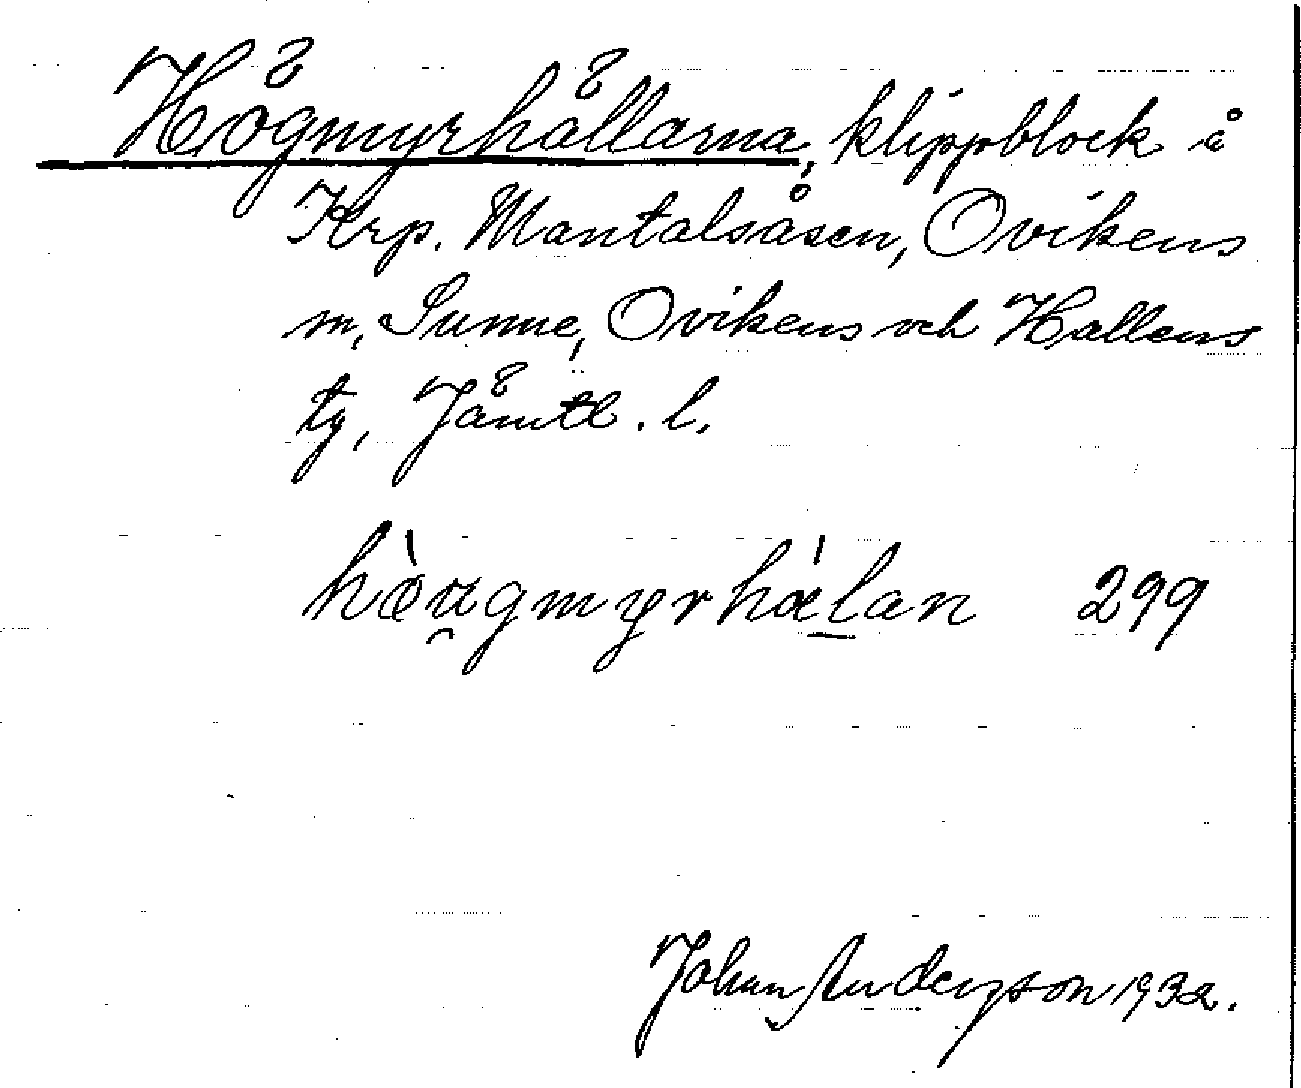 Högmyrhällarna, klippblock å
Krp. Mantalsåsen, Ovikens
m, Sunne, Ovikens och Hallens
tg, Jämtl. l.
299
Johan Anderzson 1932.